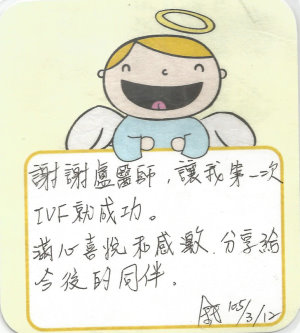 謝謝盧醫師，讓我第一次
IVF就成功。
滿心喜悅和感激，分享給
今後的同伴。
105/3/12